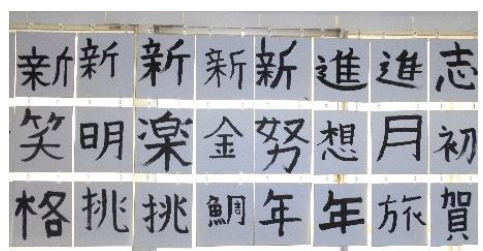 新新新新新進進志
笑明楽金努想月初
格挑挑鯛年年旅賀